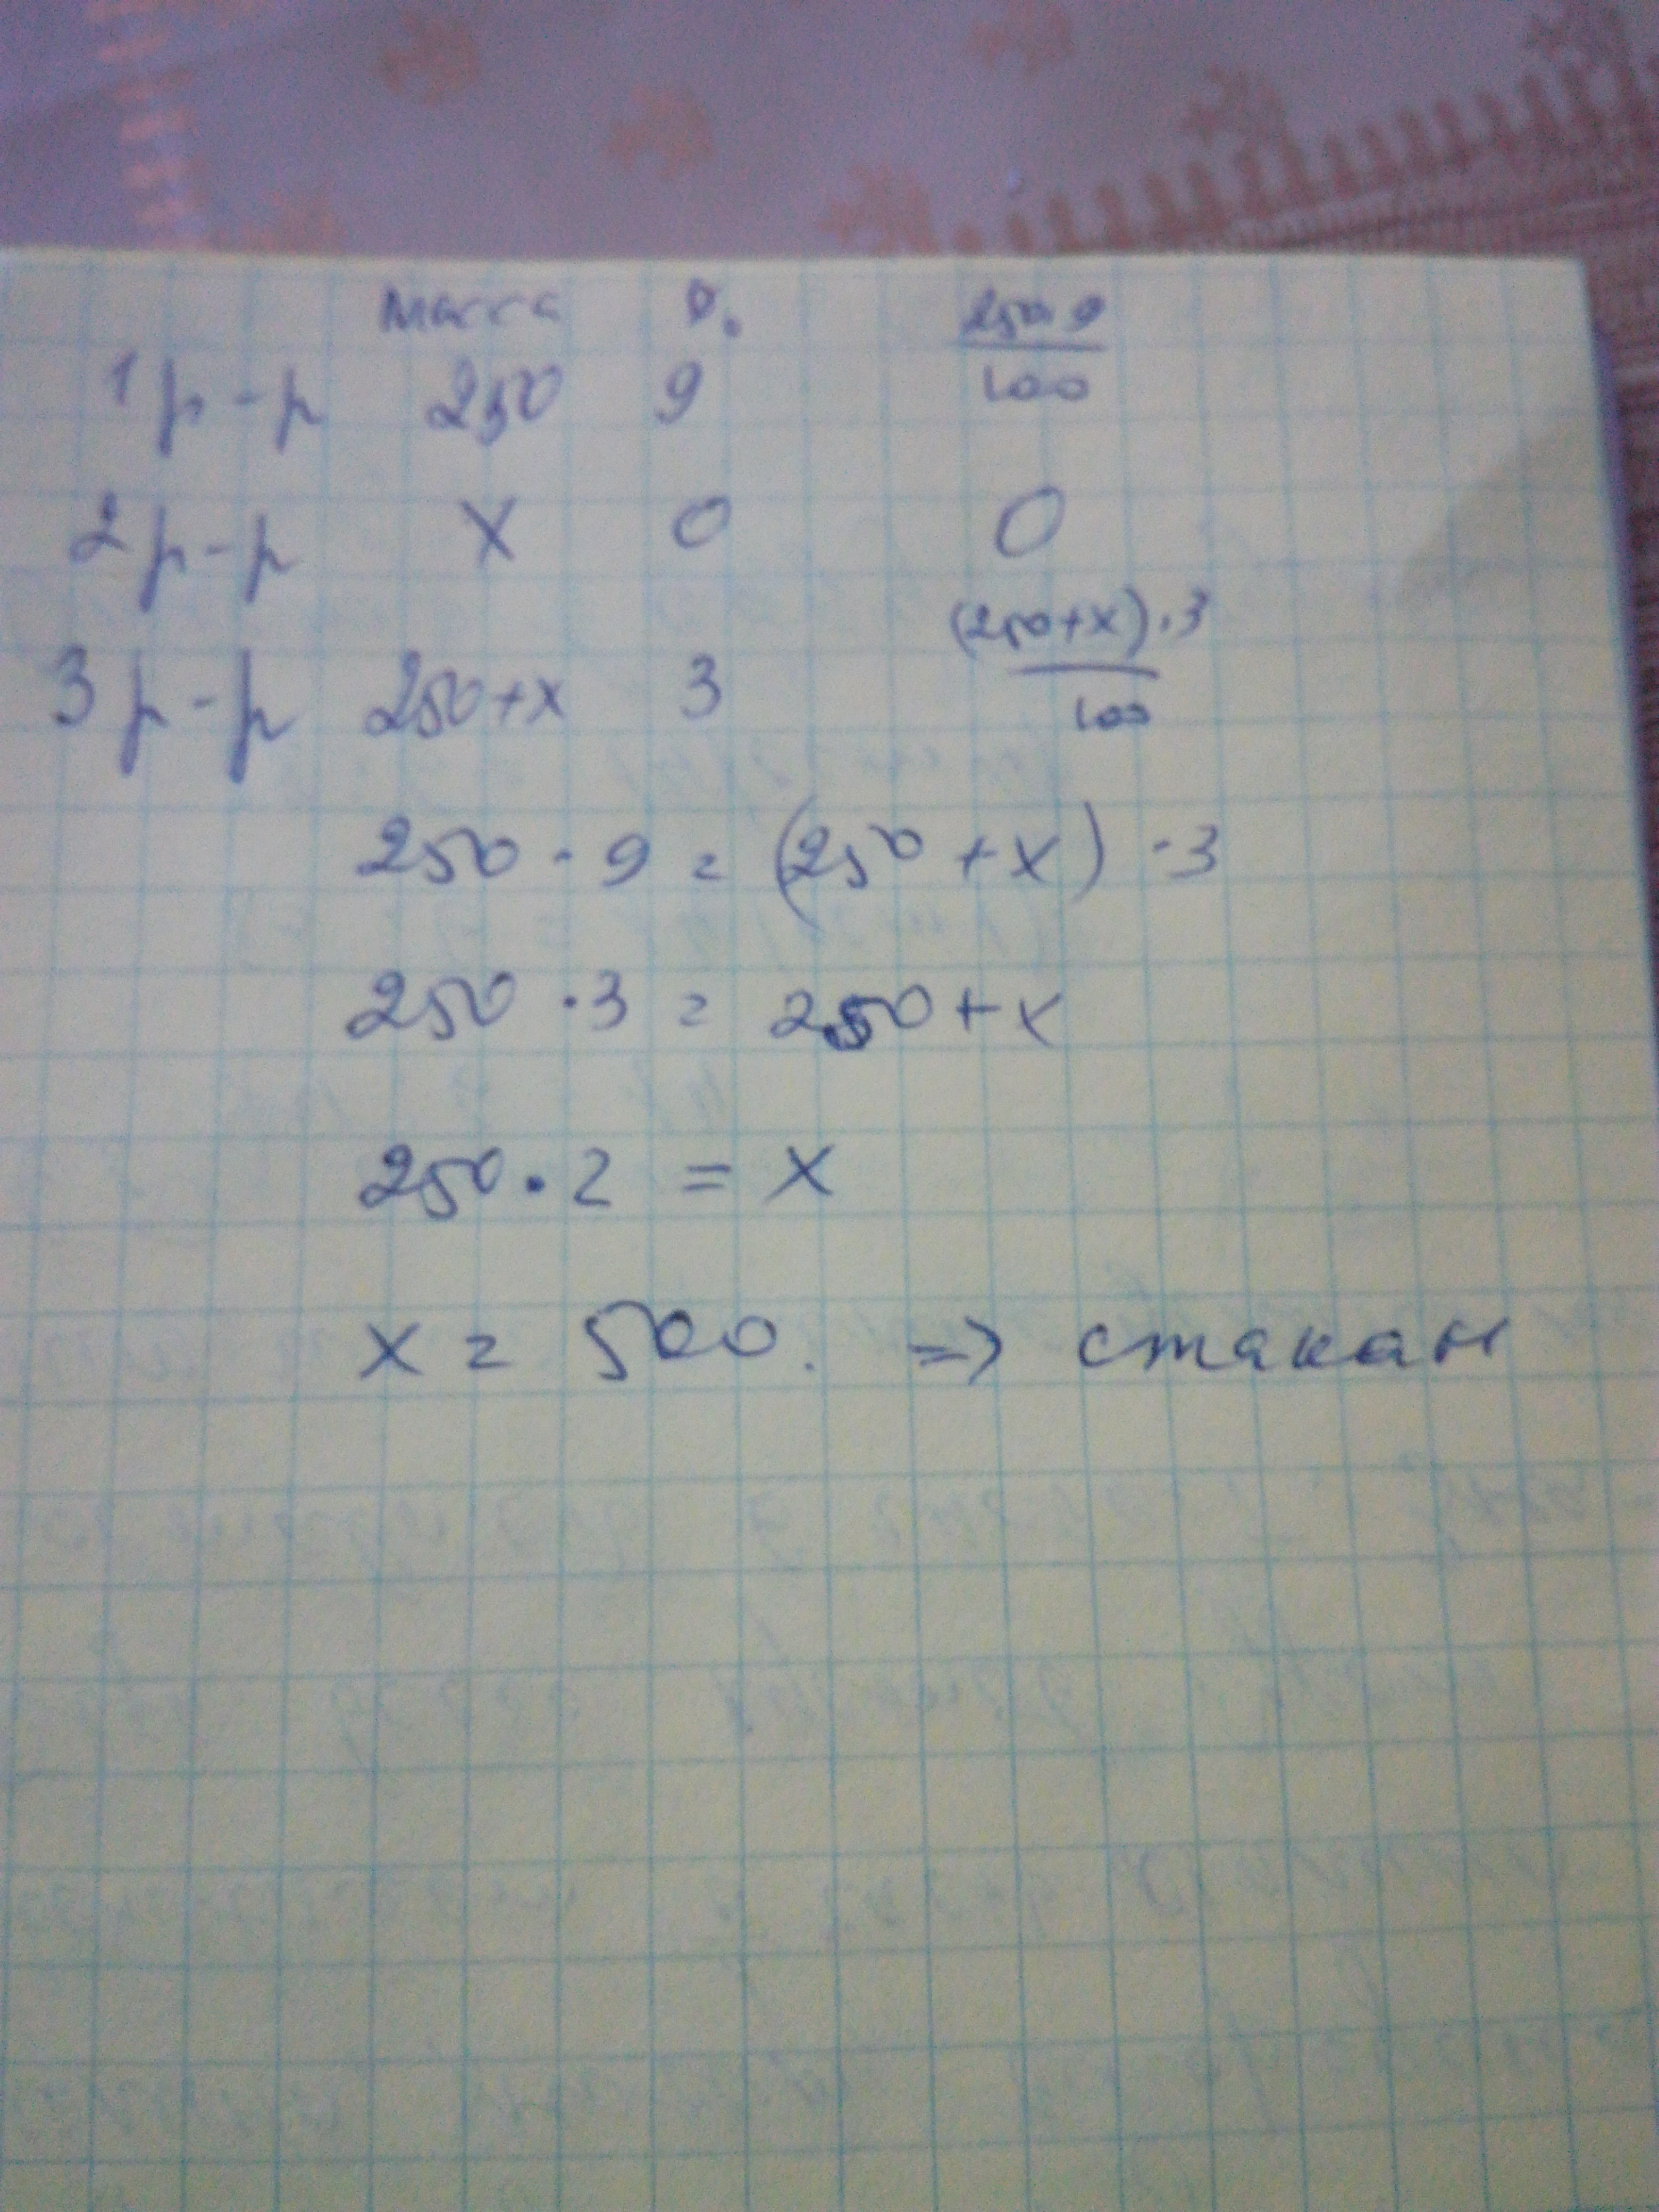 Масса %
1 р-р 250 9 250·9/100
2 р-р x 0 0
3 р-р 250+x 3 (250+x)·3/100
250 · 9 = (250 + x) · 3
250 · 3 = 250 + x
250 · 2 = x
x = 500. => стакан